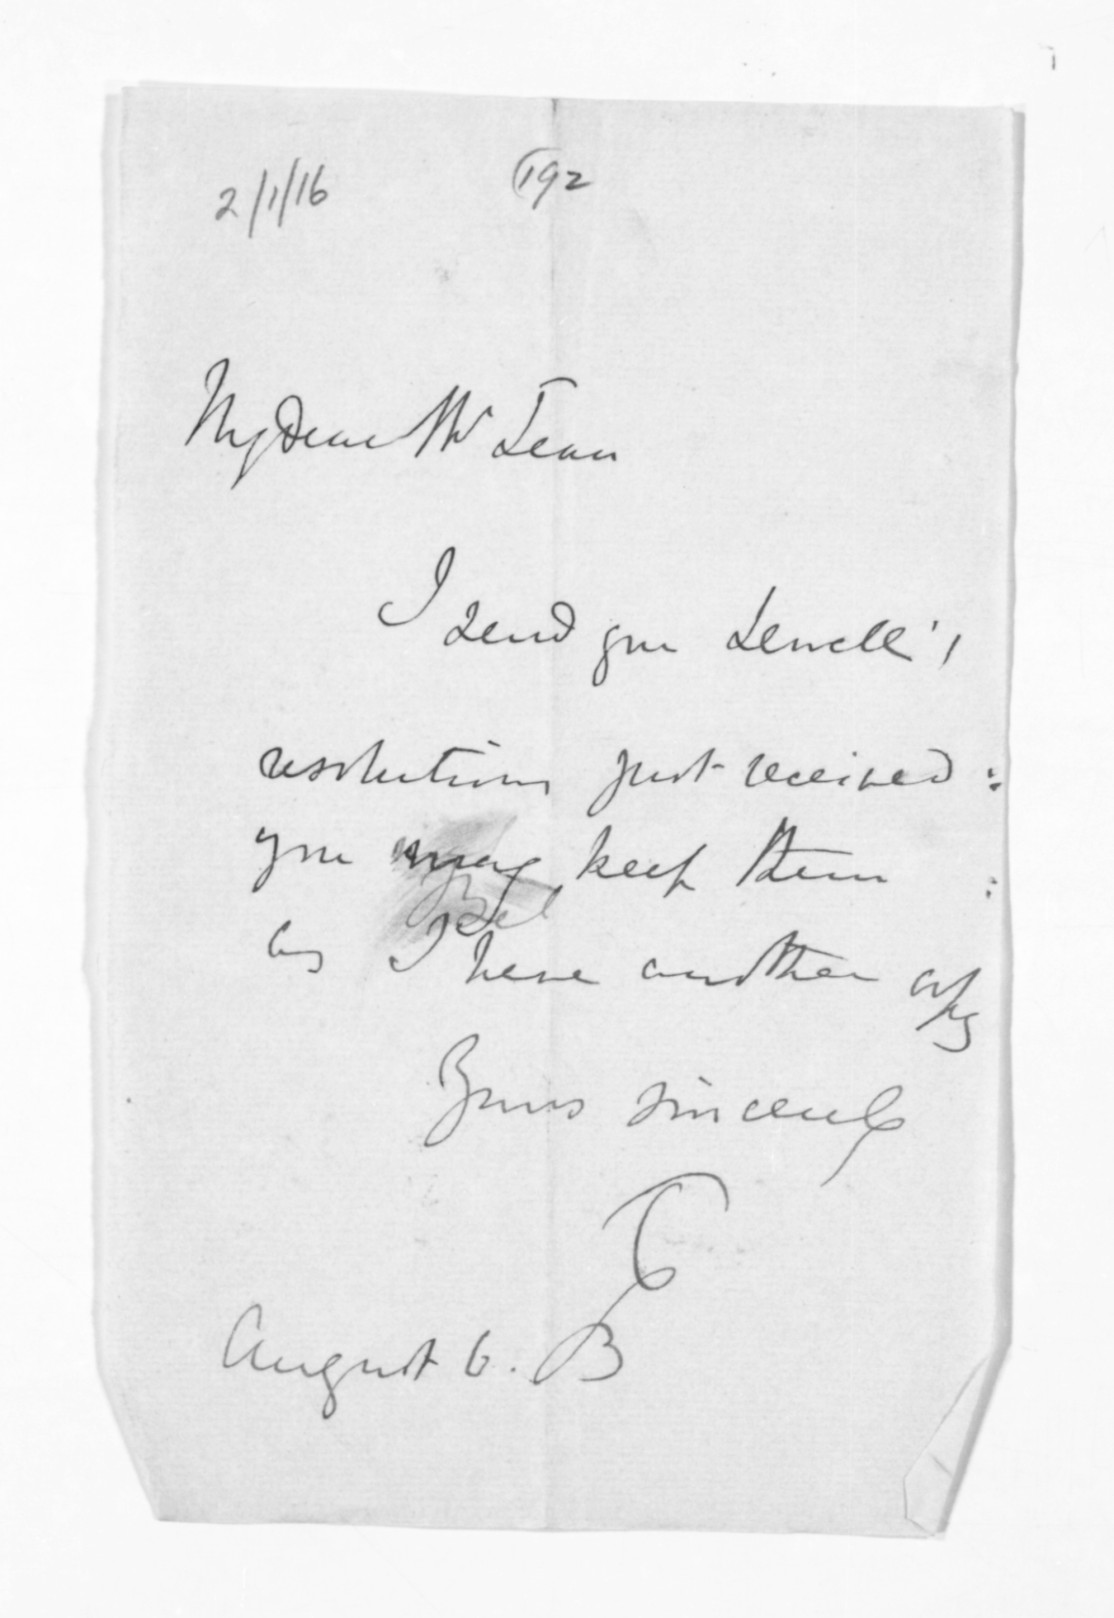 2/1/16
192
My Dear McLean
I send you Sewell's
resolutions just received :
you may keep them :
as I have another copy
Yours sincerely
B
August 6.